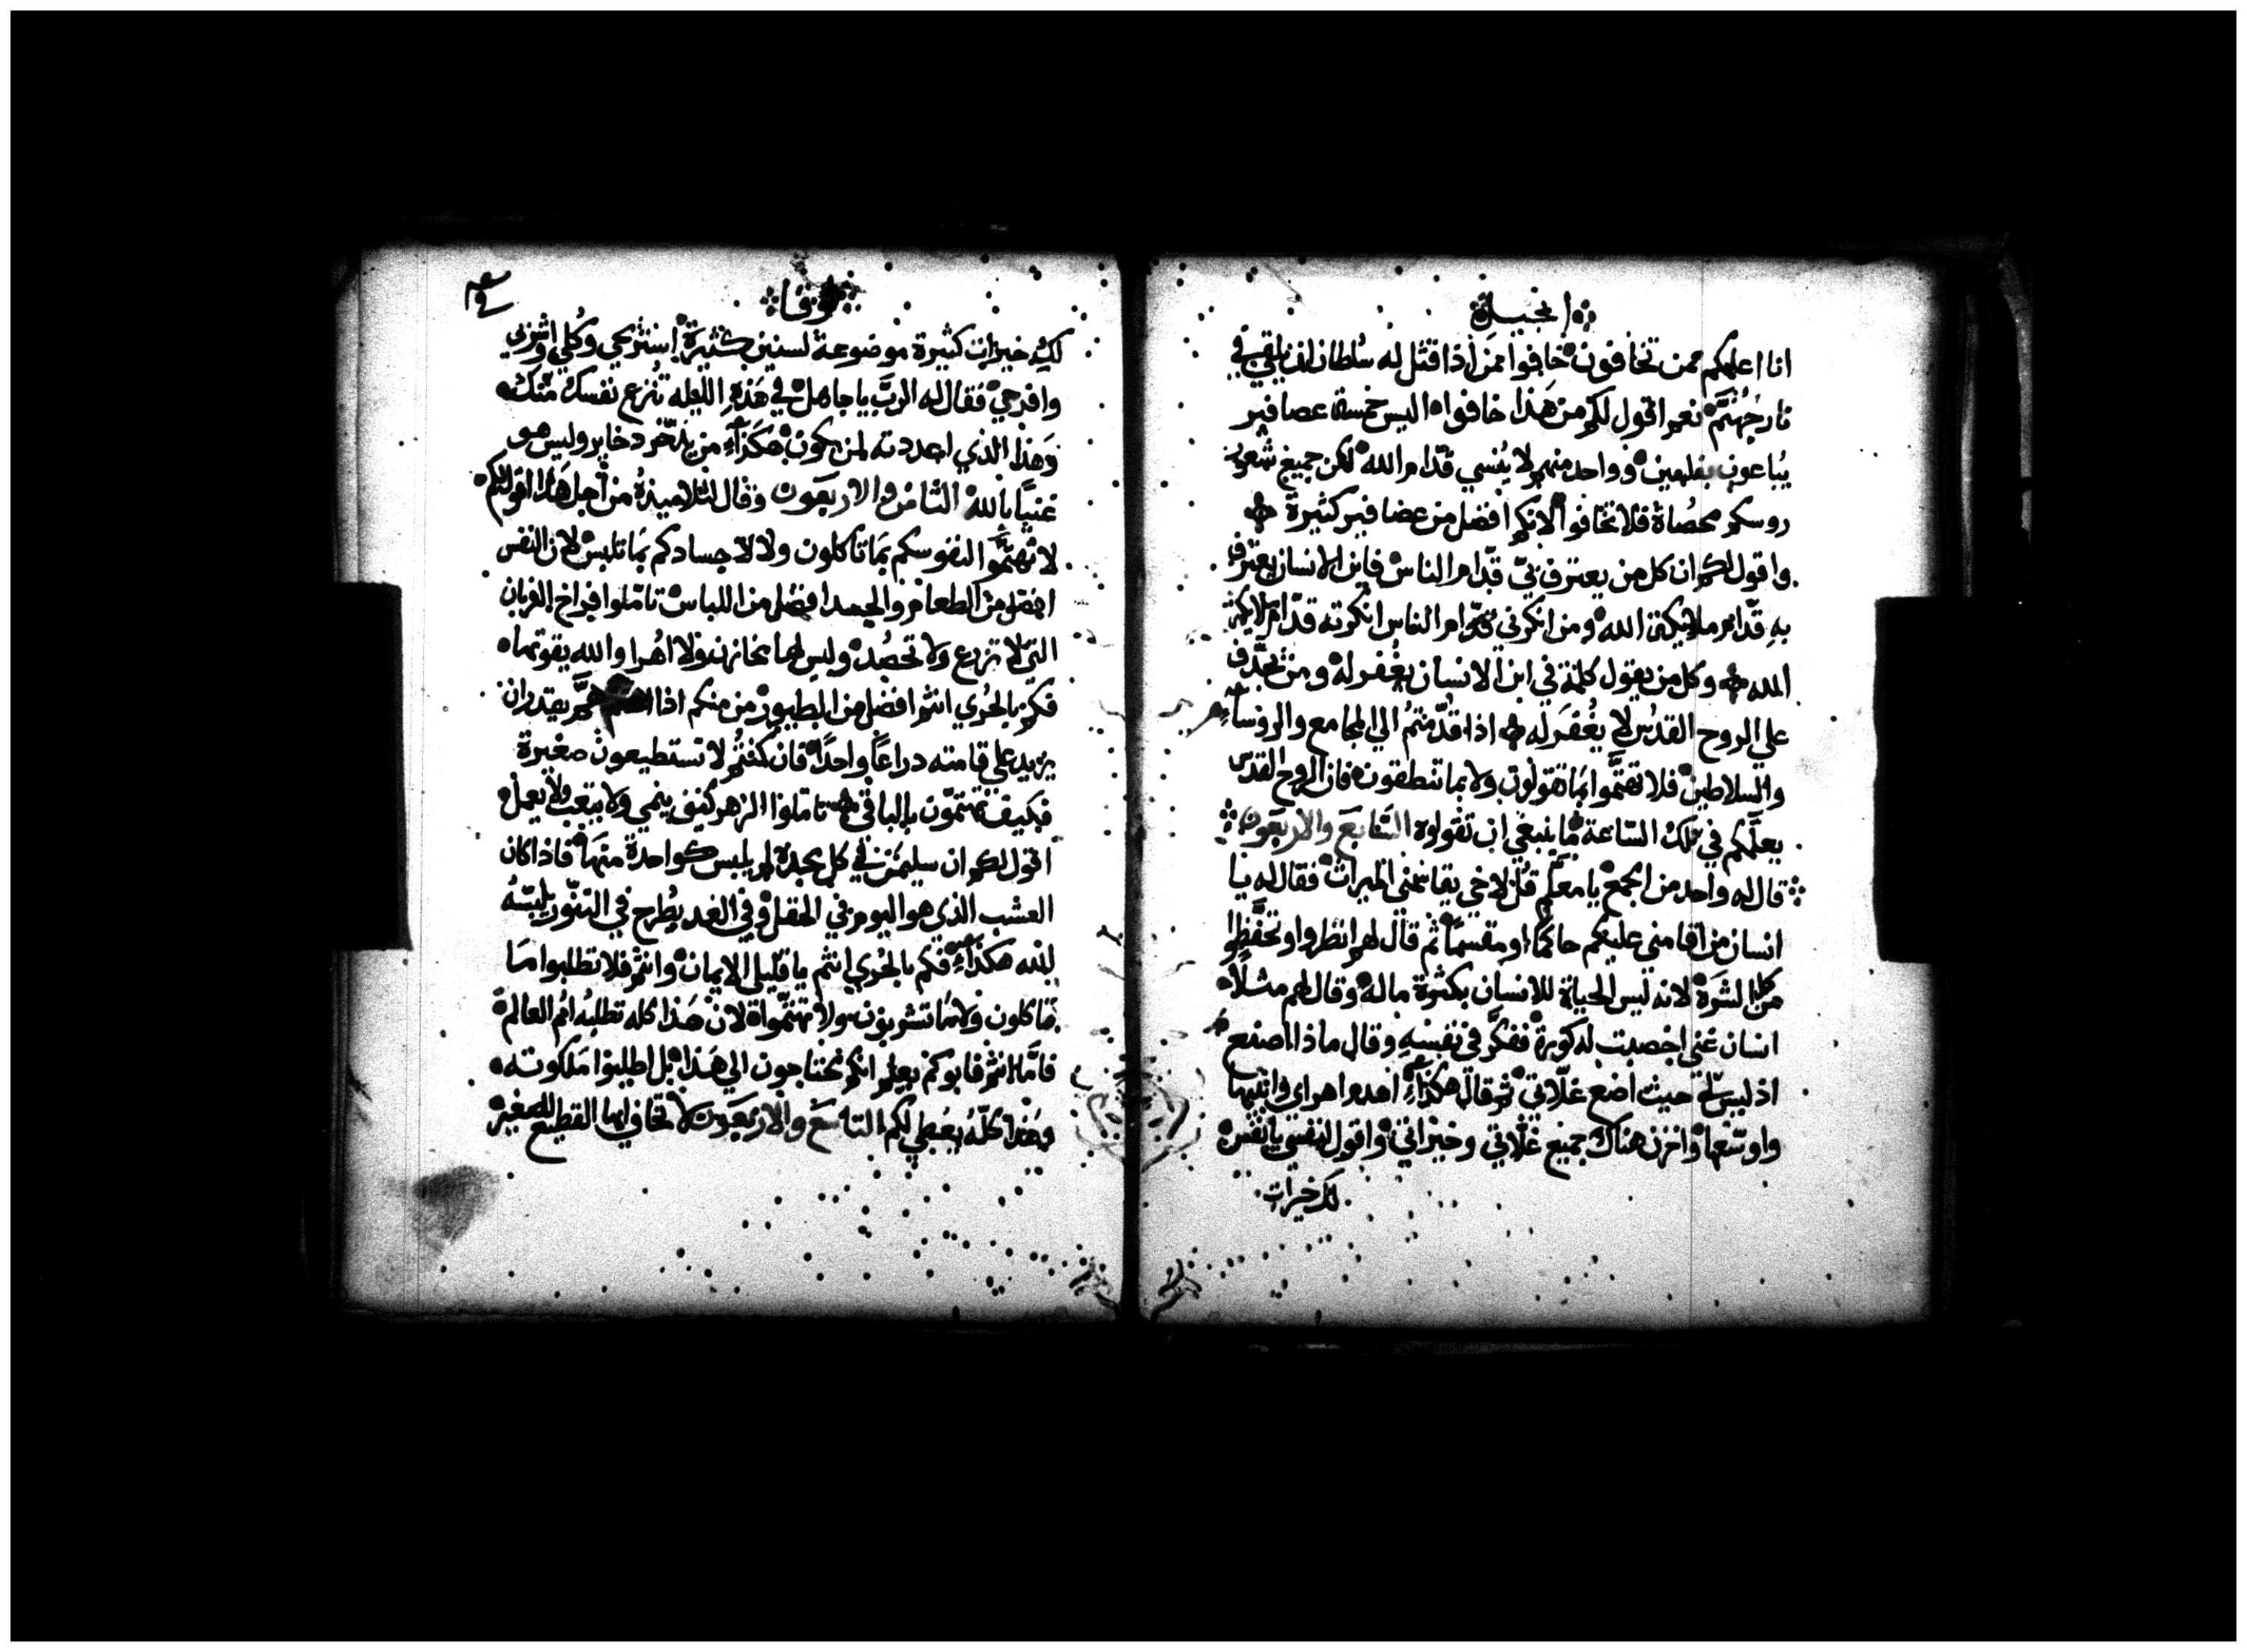 انجيل
انا اعلمكم ممن تخافون خافوا ممن اذا قتل له سلطان ان يلقي في
نار جهنم نعم اقول لكم من هذا خافوا اليس خمسة عصافير
يباعون بفلسين وواحد منهم لا ينسي قدام الله لكن جميع شعور
روسكم محصاة فلا تخافوا لانكم افضل من عصافير كثيرة
واقول لكم ان كل من يعترف بي قدام الناس فابن الانسان يعترف
به قدام ملايكة الله ومن انكرني قدام الناس انكرته قدام ملايكة
الله وكل من يقول كلمة في ابن الانسان يغفر له ومن يجدف
علي الروح القدس لا يغفر له اذا قدمتم الي المجامع والروساء
والسلاطين فلا تهتموا بما تقولون ولا بما تنطقون فان الروح القدس
يعلمكم في تلك الساعة ما ينبغي ان تقولوه السابع والاربعون
قال له واحد من الجمع يا معلم قل لاخي يقاسمني الميراث فقال له يا
انسان من اقامني عليكم حاكما او مقسما ثم قال لهم انظروا وتحفظوا
من كل الشره لانه ليس الحياة للانسان بكثرة ماله وقال لهم مثلا
انسان غني اخصبت له كورة ففكر في نفسه وقال ماذا اصنع
اذ ليس لي حيث اضع غلاتي ثم قال هكذا اهدم اهراي وابنيها
واوسعها واخزن هناك جميع غلاتي وخيراتي واقول لنفسي يا نفس
لك خيرات
لوقا
لك خيرات كثيرة موضوعة لسنين كثيرة استريحي وكلي واشربي
وافرحي فقال له الرب يا جاهل في هذه الليله تنزع نفسك منك
وهذا الذي اعددته لمن يكون هكذا من يدخر دخاير وليس هو
غنيا بالله الثامن والاربعون وقال لتلاميذه من اجل هذا اقول لكم
لا تهتموا لنفوسكم بما تاكلون ولا لاجسادكم بما تلبس لان النفس
افضل من الطعام والجسد افضل من اللباس تاملوا فراخ الغربان
التي لا تزرع ولا تحصد وليس لها مخازن ولا اهرا والله يقوتها
فكم بالحري انتم افضل من الطيور من منكم اذا اهتم يقدر ان
يزيد علي قامته دراعا واحدا فان كنتم لا تستطيعون صغيرة
فكيف تهتمون بالباقي تاملوا الزهر كيف ينمي ولا يتعب ولا يعمل
اقول لكم ان سليمن في كل مجده لم يلبس كواحدة منها فاذا كان
العشب الذي هو اليوم في الحقل وفي الغد يطرح في التنور يلبسه
الله هكذا فكم بالحري انتم يا قليلي الايمان وانتم فلا تطلبوا ما
تاكلون ولا ما تشربون ولا تهتموا لان هذا كله تطلبه امم العالم
فاما انتم فابوكم يعلم انكم تحتاجون الي هذا بل اطلبوا ملكوته
وهذا كله يعطي لكم التاسع والاربعون لا تخاف ايها القطيع الصغير